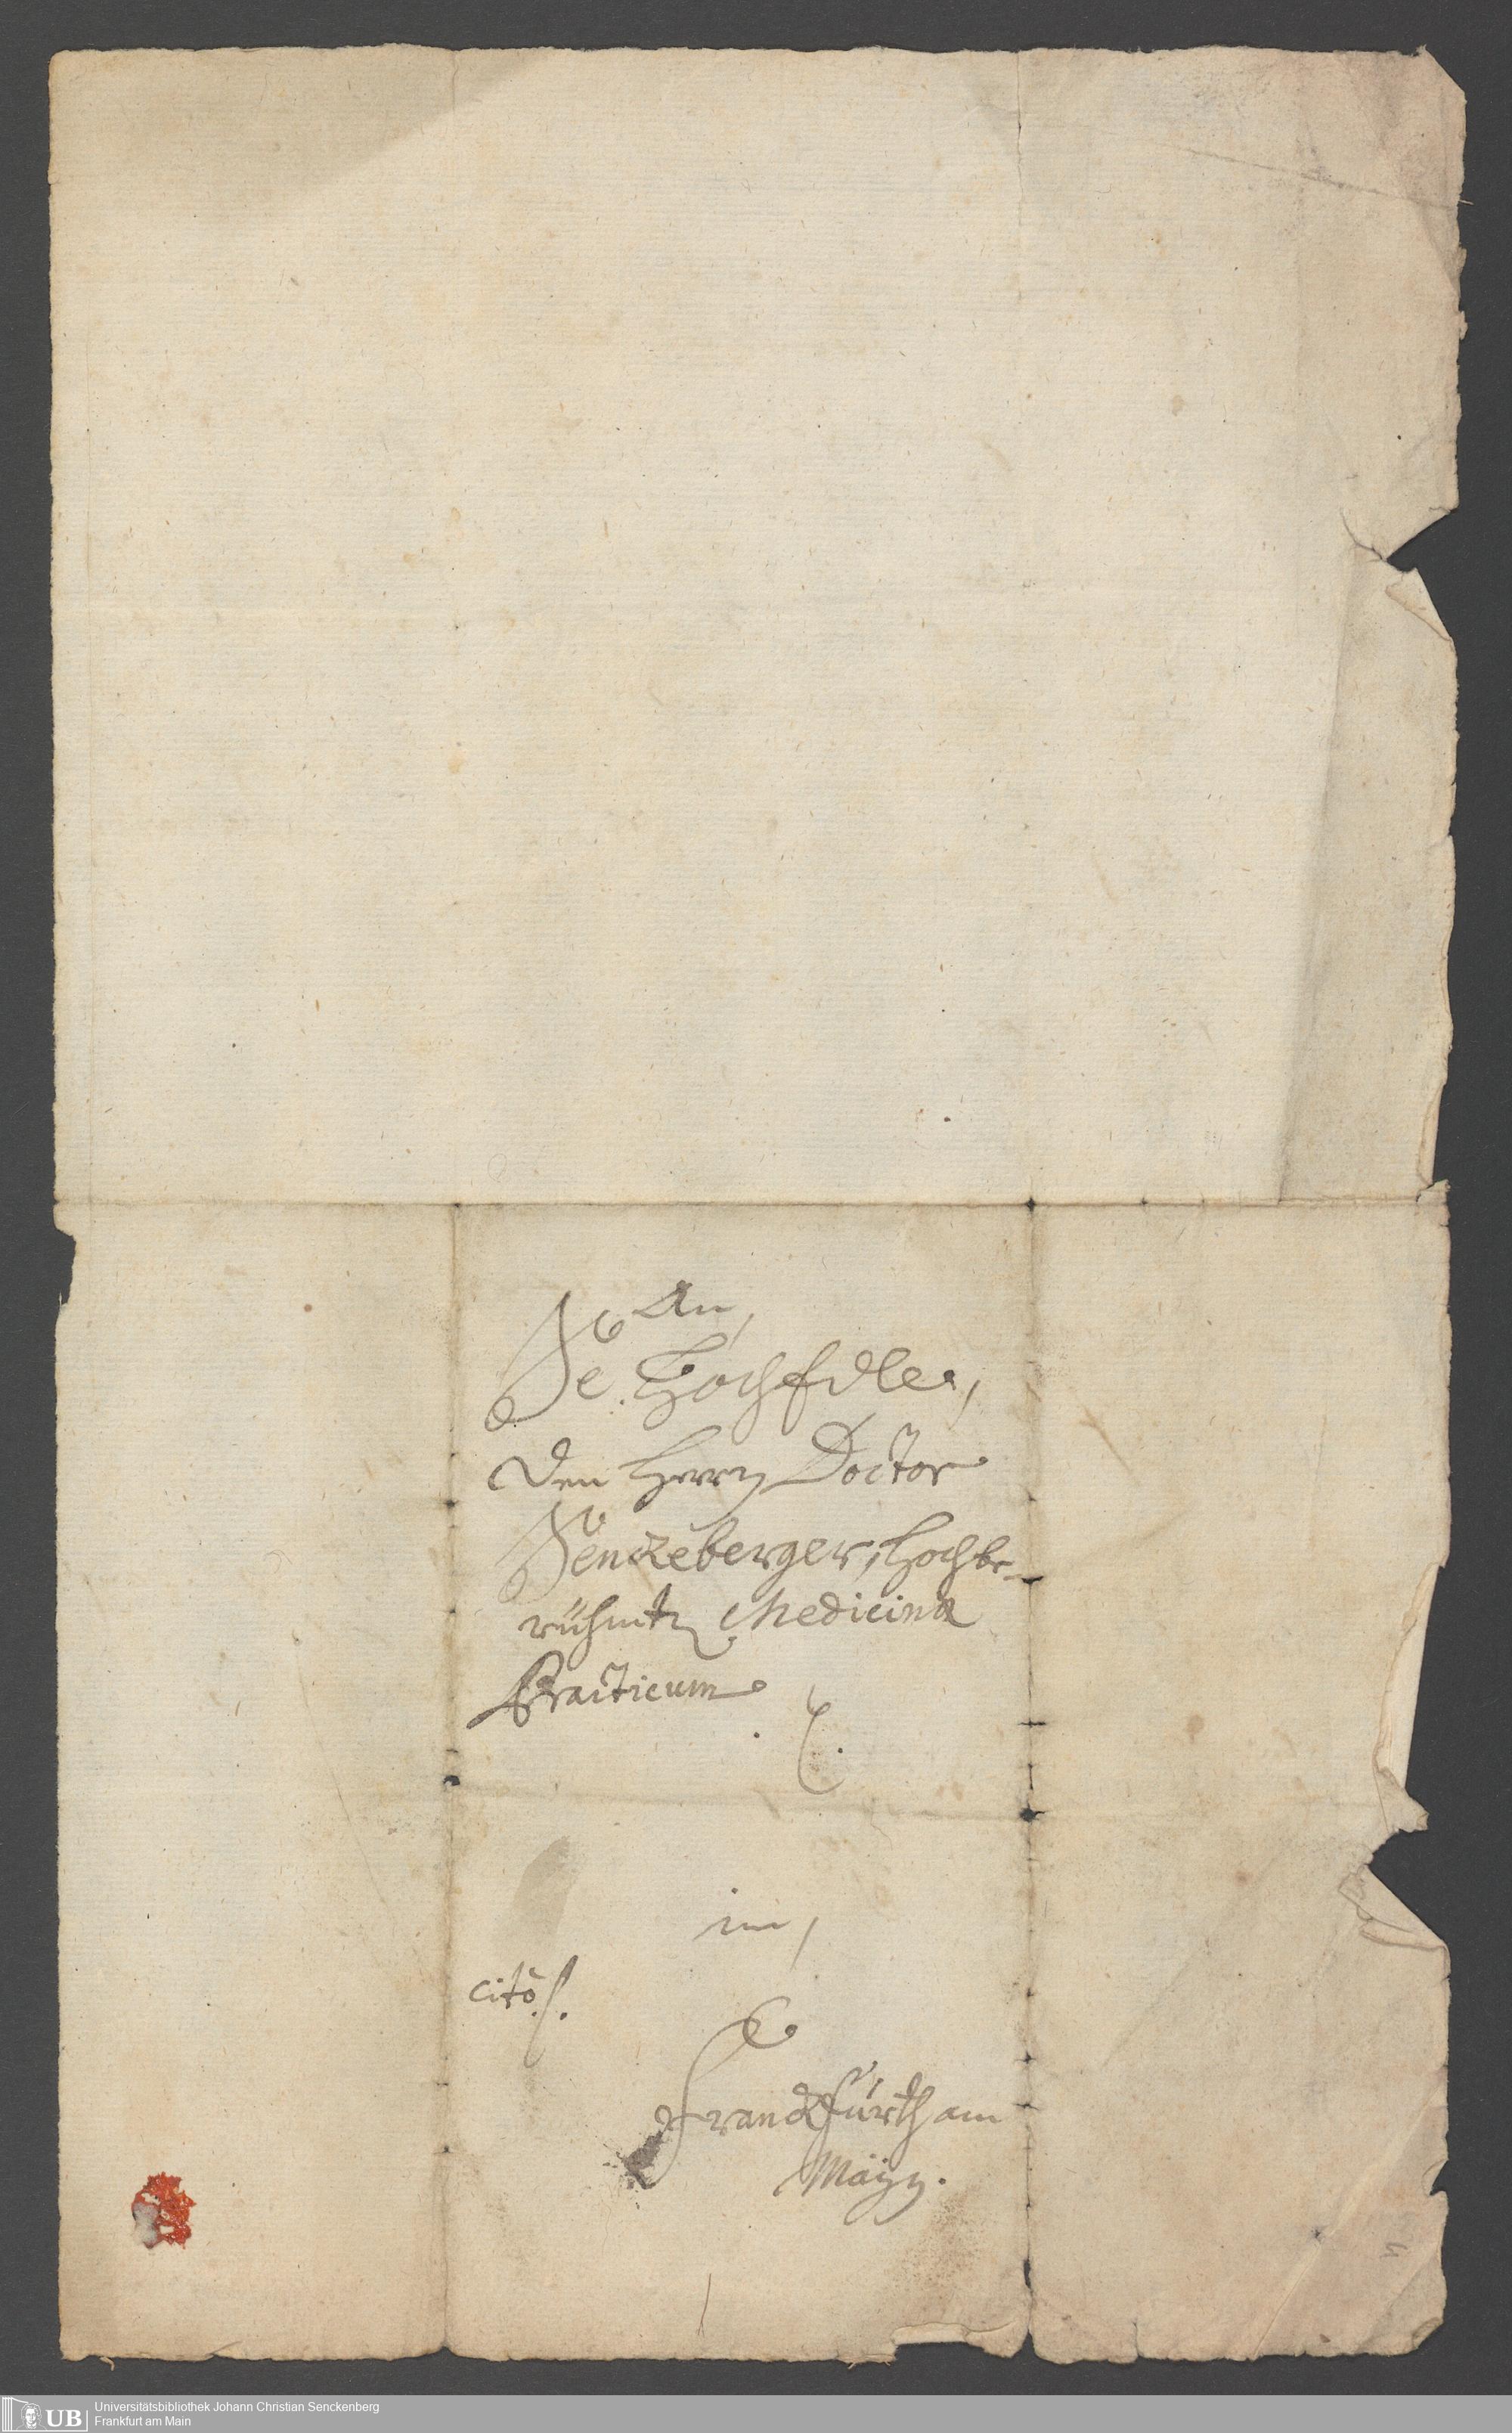 An,
Se. HochEdle,
den Herrn Doctor
Senckeberger, Hochbe-
rühmtn Medicinæ
Practicum
in,
citò
Franckfurth am
Mäyn.
Universitätsbibliothek Johann Christian Senckenberg
UB
Frankfurt am Main